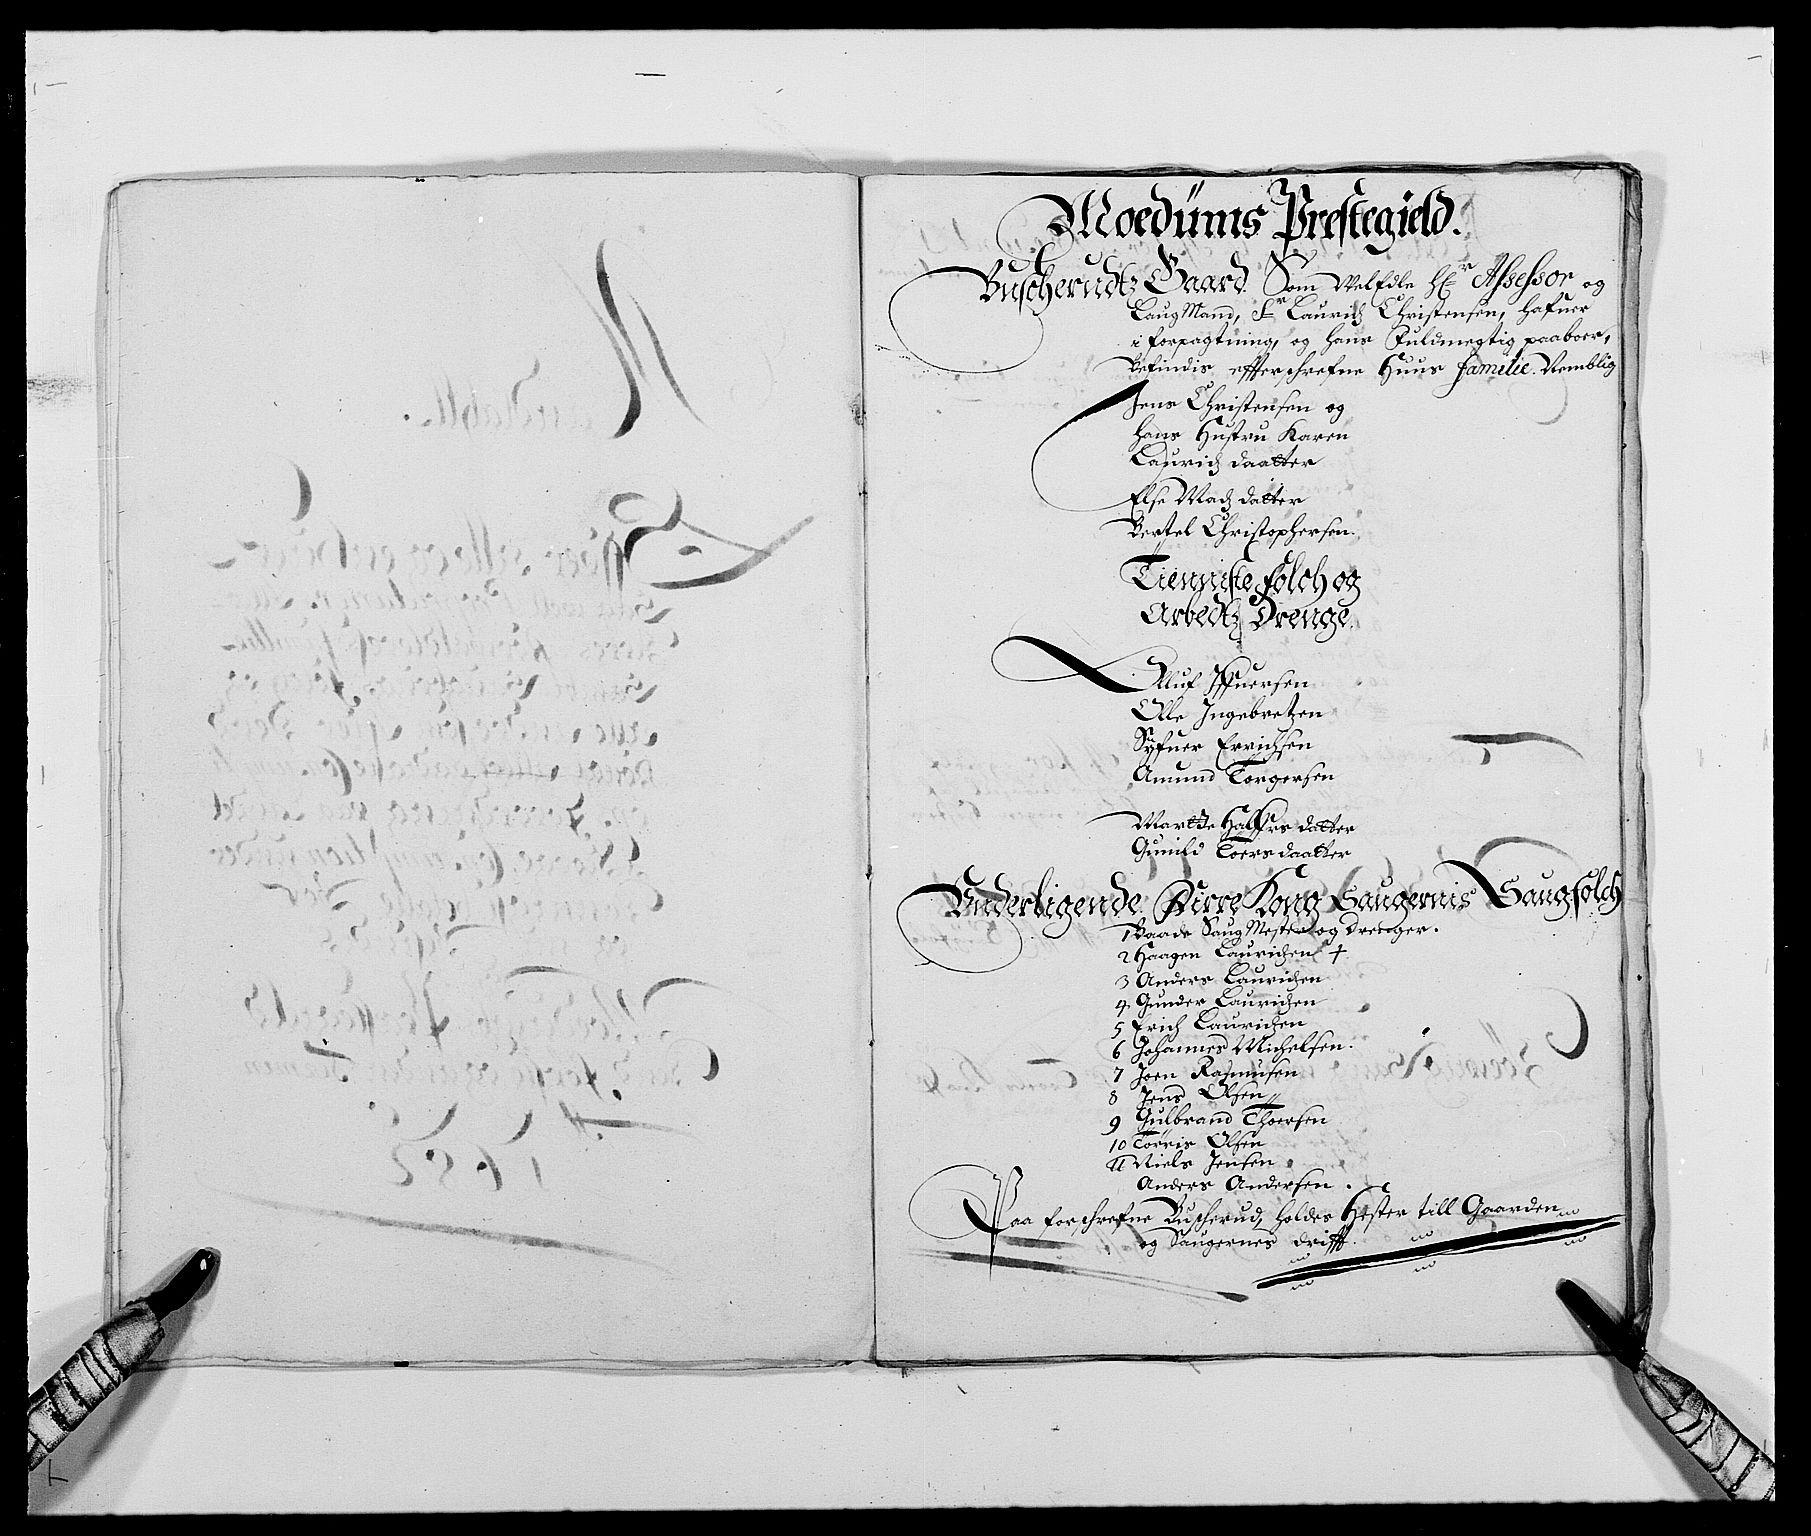 Moedüms Prestegield.
Buscherudtz Gaard Som WelEdle Hr Assessor og
LaugMand, Sr Lauridz Christensen, hafuer
i forpagtning, og hans Fuldmegtig paaboer,
Befindis effterschrefne Huus familie. Nemblig
Jens Christensen og
hans Hustru Karen
Lauridz daatter
Else Madz datter
Bertel Christophersen.
Tienniste folch og
Arbedtz Drenge.
Olluf Iffuersen
Olle Ingebretzen
Syfuer Errichsen
Amund Torgersen
Marthe Halfuors datter
Gunild Toersdaatter
Underligende Kirre Kong Saugernis Saugfolch
1 Baade SaugMester og Drenger.
2 Haagen Lauridzen +
3 Anders Lauridzen
4 Gunder Lauridzen
5 Erich Lauridzen
6 Johannes Michelsen.
7 Joen Rasmusen
8 Jens Olsen
9 Gulbrand Thoersen
10 Torris Olsen
11 Niels Jensen
Anders Andersen.
Paa forschrefne Buscherud, holdes Hester till Gaarden
og Saugernes drifft.